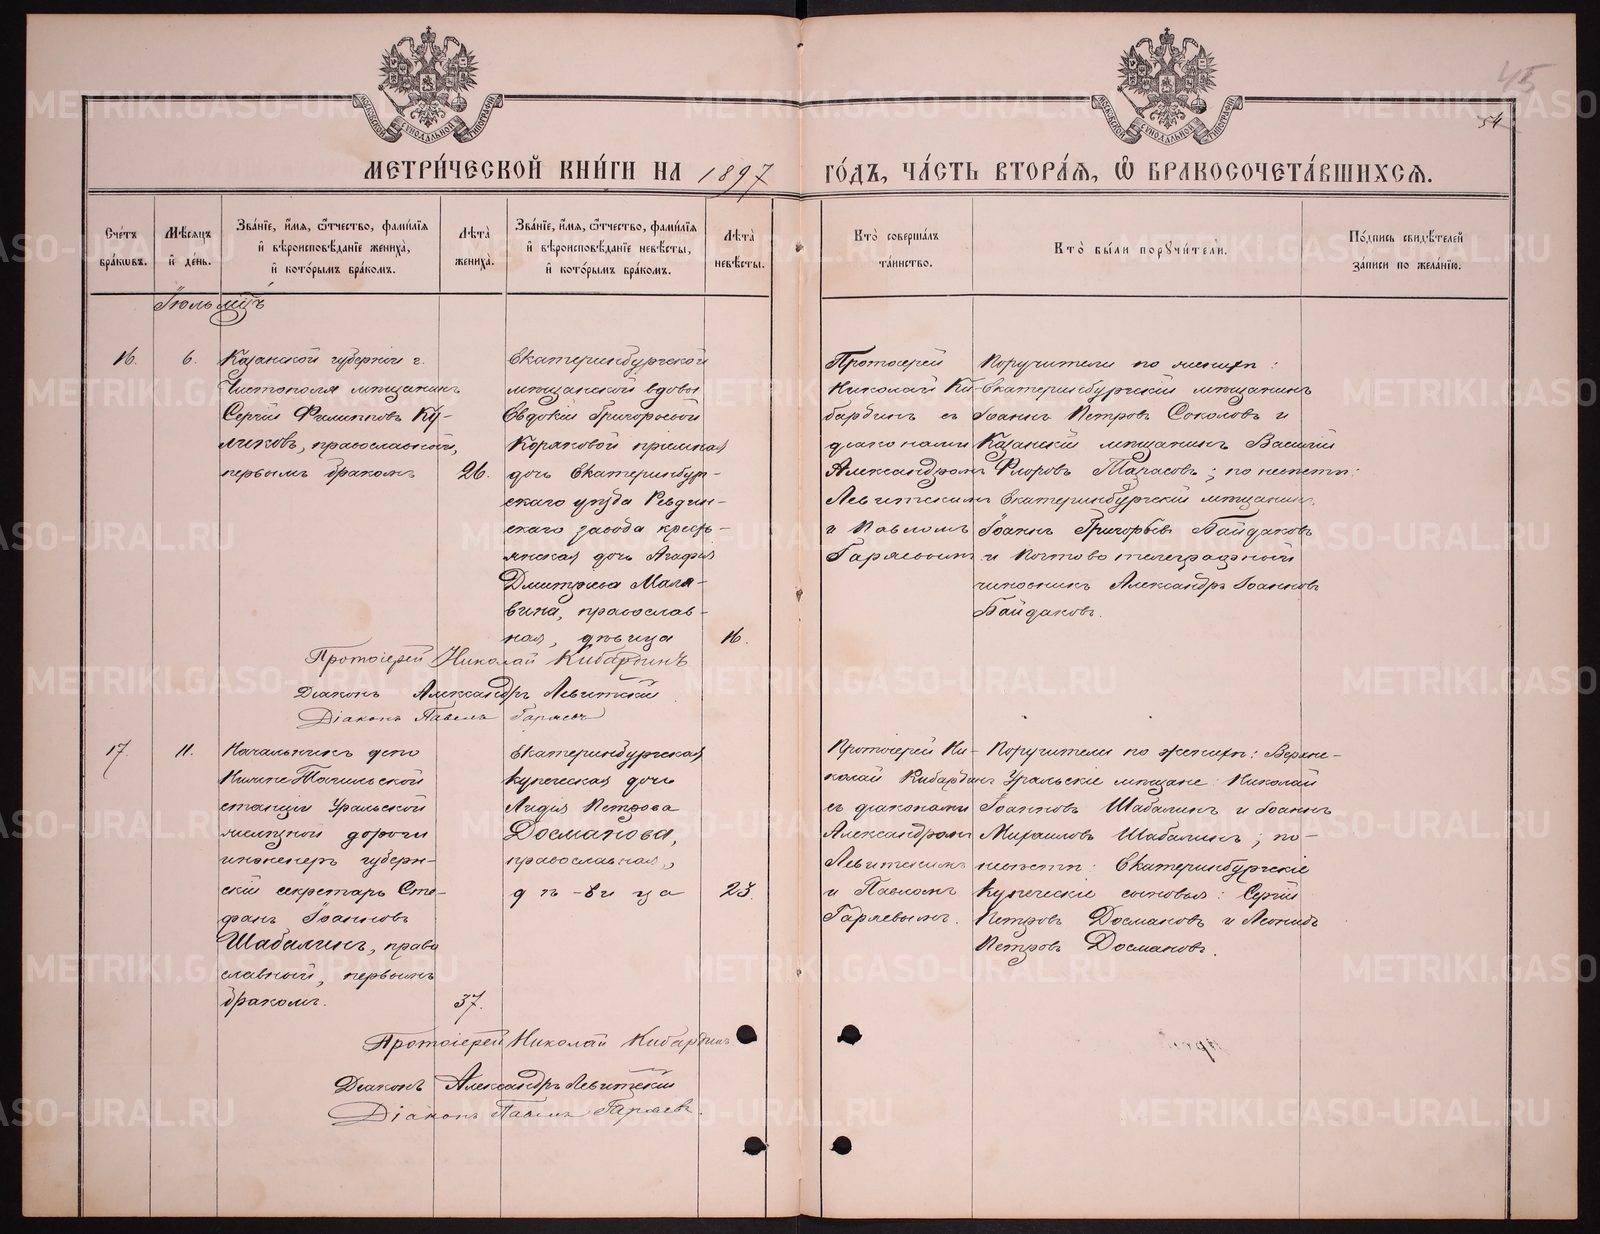 МЕТРИ́ЧЕСКОЙ КНИ́ГИ НА 1897 ГО́ДЪ, ЧА́СТЬ ВТОРА́Я, Ѽ БРАКОСОЧЕТА́ВШИХСЯ.
45
54
Сче́тъ бра́ковъ.
Мѣ́сяцъ и҆ де́нь.
Зва́нїе, и҆́мя, ѻ҆́тчество, фами́лїя и҆ вѣроисповѣ́данїе жениха̀, и҆ кото́рымъ бра́комъ.
Лѣ́та̀ жениха̀.
Зва́нїе, и҆́мя, ѻ҆́тчество, фами́лїя и҆ вѣроисповѣ́данїе невѣ́сты, и҆ кото́рымъ бра́комъ.
Лѣ́та̀ невѣ́сты.
Кто̀ соверша́лъ та́инство.
Кто̀ бы́ли поручи́тели.
По́дпись свидѣ́телей за́писи по жела́нїю.
Іюль мцъ
16.
6.
Казанской губернiи г.
Чистополя мѣщанинъ
Сергiй Филипповъ Ку-
ликовъ, православной,
первымъ бракомъ
26.
Екатеринбургской
мѣщанской вдовы
Евдокiи Григорьевой
Коряковой прiемная
дочь Екатеринбур-
скаго уѣзда Ревдин-
скаго завода кресть-
янская дочь Агафiя
Дмитрiева Маля-
вина, православ-
ная, дѣвица
16.
Протоiерей
Николай Ки-
бардинъ съ
дiаконами
Александромъ
Левитскимъ
и Павломъ
Гаряевымъ
Поручители по женихѣ:
Екатеринбургскiй мѣщанинъ
Iоаннъ Петровъ Соколовъ и
Казанскiй мѣщанинъ Василiй
Флоровъ Тарасовъ; по невѣстѣ:
Екатеринбургскiй мѣщанинъ
Iоаннъ Григорьевъ Байдаковъ
и Почтово телеграфный
чиновникъ Александръ Iоанновъ
Байдаковъ.
Протоiерей Николай Кибардинъ
Дiаконъ Александръ Левитскiй
Дiаконъ Павелъ Гаряевъ
17.
11.
Начальникъ депо
Нижне Тагильской
станцiи Уральской
желѣзной дороги
инженеръ губерн-
скiй секретарь Сте-
фанъ Iоанновъ
Шабалинъ, право
славный, первымъ
бракомъ.
37.
Екатеринбургская
купеческая дочь
Лидiя Петрова
Досманова,
православная,
дѣ-вица
23.
Протоiерей Ни-
колай Кибардинъ
съ дiаконами
Александромъ
Левитскимъ
и Павломъ
Гаряевымъ.
Поручители по женихѣ: Верхне-
Уральскiе мѣщане: Николай
Iоанновъ Шабалинъ и Iоаннъ
Михаиловъ Шабалинъ; по-
невѣстѣ: Екатеринбургскiе
купеческiе сыновья: Сергiй
Петровъ Досмановъ и Леонидъ
Петровъ Досмановъ.
Протоiерей Николай Кибардинъ
Дiаконъ Александръ Левитскiй
Дiаконъ Павелъ Гаряевъ.
METRIKI.GASO-URAL.RU